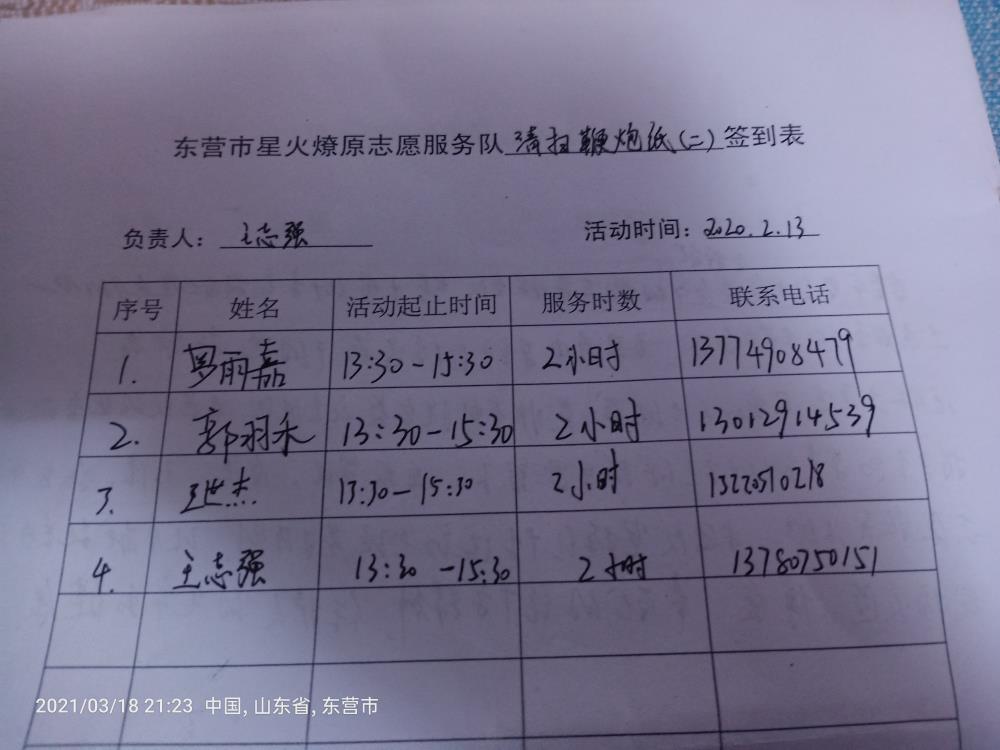 东营市星火燎原志愿服务队 清扫鞭炮纸(二) 签到表
负责人: 王志强 活动时间: 2020.2.13
序号 姓名 活动起止时间 服务时数 联系电话
1. 罗丽嘉 13:30-15:30 2小时 13774908479
2. 郭羽禾 13:30-15:30 2小时 13012914539
3. 王世杰 13:30-15:30 2小时 13220510218
4. 王志强 13:30-15:30 2小时 13780750151
2021/03/18 21:23 中国, 山东省, 东营市